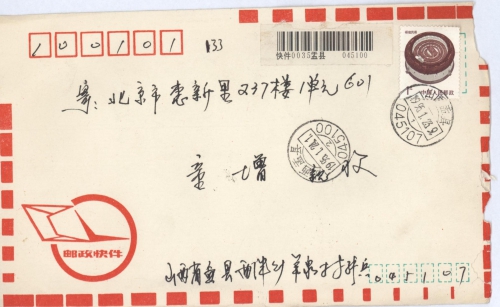 100101 133
快件0035盂县 045100
寄:北京市惠新里237楼1单元601
中国人民邮政
045107
045100
童增 收
邮政快件
山西省盂县西潘乡羊泉村
045107